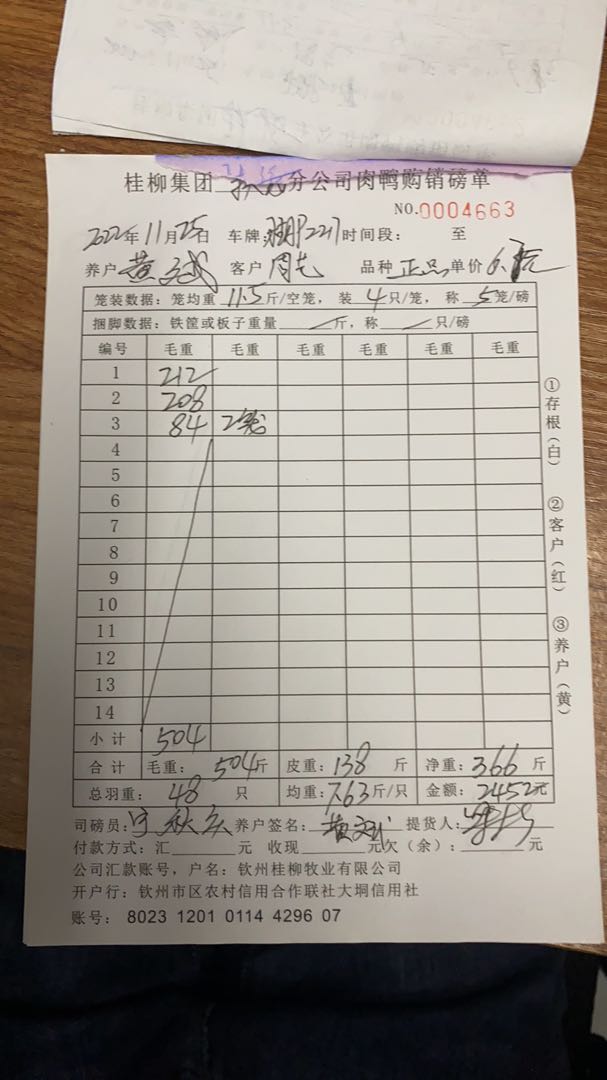 桂柳集团 分公司肉鸭购销磅单
NO.0004663
2022年11月25日 车牌: 2217 时间段: 至
养户 黄 客户 周 品种 正品 单价 6.
笼装数据: 笼均重 11.5 斤/空笼, 装 4 只/笼, 称 5 笼/磅
捆脚数据: 铁筐或板子重量 斤, 称 只/磅
编号 毛重 毛重 毛重 毛重 毛重 毛重
1 212
2 208
3 84 2笼
4
5
6
7
8
9
10
11
12
13
14
小计 504
合计 毛重: 504斤 皮重: 138 斤 净重: 366 斤
总羽重: 48 只 均重: 7.63斤/只 金额: 2452元
司磅员: 养户签名: 黄 提货人:
付款方式: 汇 元 收现 元欠(余): 元
公司汇款账号, 户名: 钦州桂柳牧业有限公司
开户行: 钦州市区农村信用合作联社大垌信用社
账号: 8023 1201 0114 4296 07
①存根(白)
②客户(红)
③养户(黄)